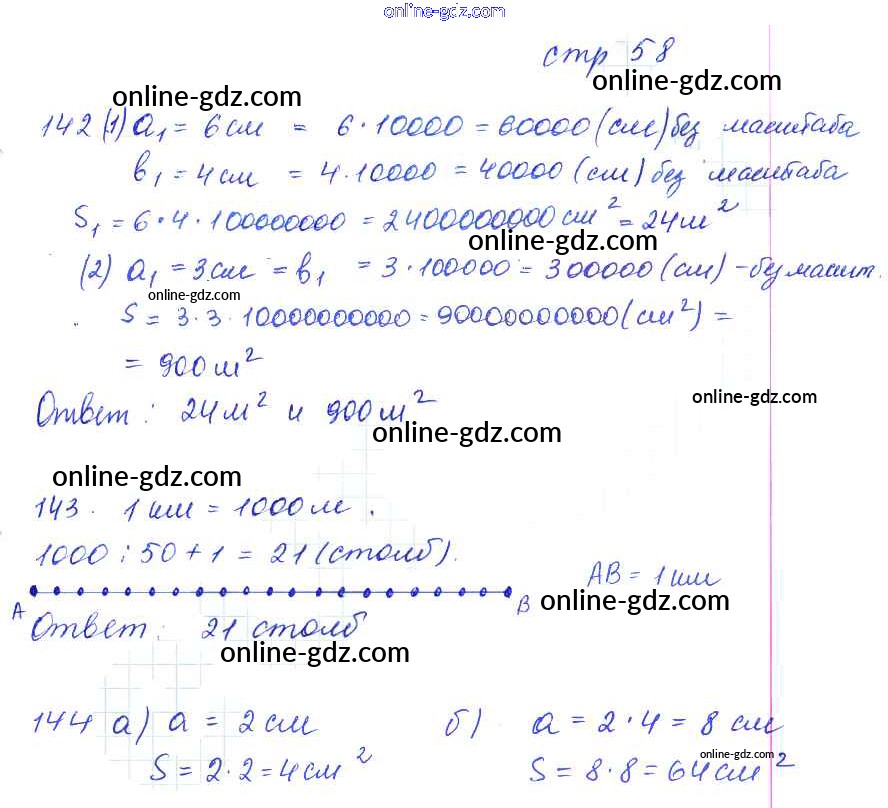 online-gdz.com
стр 58
online-gdz.com
online-gdz.com
142 (1) a₁ = 6 см = 6·10000 = 60000 (см) без масштаба
в₁ = 4 см = 4·10000 = 40000 (см) без масштаба
S₁ = 6·4·100000000 = 2400000000 см² = 24 м²
online-gdz.com
(2) a₁ = 3 см = в₁ = 3·100000 = 300000 (см) - без масшт.
online-gdz.com
S = 3·3·10000000000 = 90000000000 (см²) =
= 900 м²
online-gdz.com
Ответ: 24 м² и 900 м²
online-gdz.com
online-gdz.com
143. 1 км = 1000 м.
1000 : 50 + 1 = 21 (столб).
AB = 1 км
A B online-gdz.com
Ответ: 21 столб
online-gdz.com
144 а) a = 2 см б) a = 2·4 = 8 см
online-gdz.com
S = 2·2 = 4 см² S = 8·8 = 64 см²